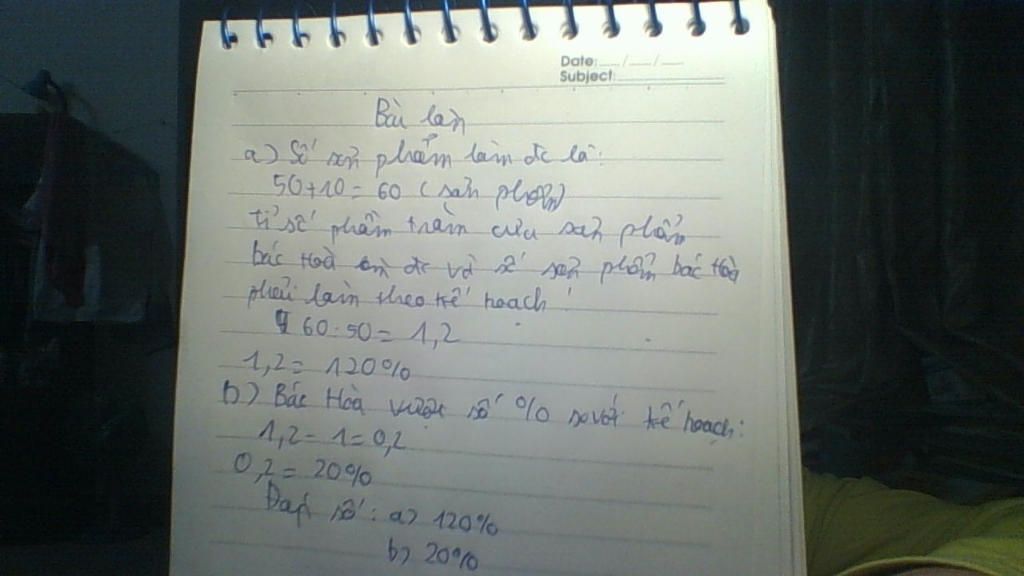 Date: __/__/__
Subject:
Bài làm
a) Số sản phẩm làm đc là:
50+10= 60 (sản phẩm)
tỉ số phầm trăm của sản phẩm
bác Hoà đc và số sản phẩm bác Hoà
phải làm theo kế hoạch:
60:50= 1,2
1,2= 120%
b) Bác Hoà vượt số % so với kế hoạch:
1,2-1=0,2
0,2= 20%
Đáp số: a) 120%
b) 20%